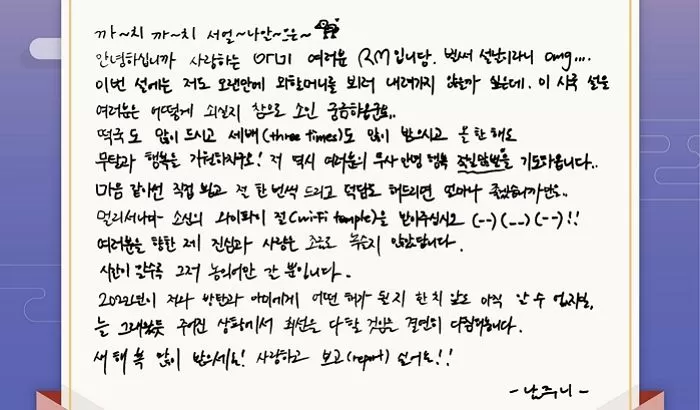 까~치 까~치 서얼~나안~은~
안녕하십니까 사랑하는 ORUI 여러분 RM입니당. 벌써 설날이라니 omg...
이번 설에는 저도 오랜만에 외할머니를 뵈러 내려가지 않을까 싶은데. 이 시국 설을
여러분은 어떻게 쇠실지 참으로 소인 궁금하옵군요..
떡국도 많이 드시고 세배(three times)도 많이 받으시고 올 한 해도
무탈과 행복을 기원하지구요! 저 역시 여러분의 무사 안녕 행복 적일많발을 기도하옵니다..
마음 같아선 직접 뵙고 전 한 번씩 드리고 덕담도 해드리면 얼마나 좋겠습니까만요..
멀리서나마 소신의 와이파이 절(wi-Fi temple)을 받아주십시오 (--) (__) (--) !!
여러분을 향한 제 진심과 사랑은 조금도 녹슬지 않았답니다.
시간이 갈수록 그저 농익어만 갈 뿐입니다.
2022년이 저와 방탄과 아미에게 어떤 해가 될지 한 치 앞도 아직 알 수 없지만,
늘 그래왔듯 주어진 상황에서 최선을 다할 것임은 결연히 다짐해봅니다.
새해 복 많이 받으세요! 사랑하고 보고(report) 싶어요!!
- 남주니 -